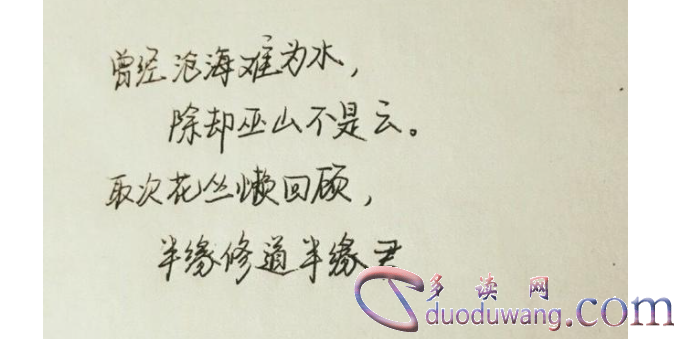 曾经沧海难为水，
除却巫山不是云。
取次花丛懒回顾，
半缘修道半缘君
多读网
duoduwang.com